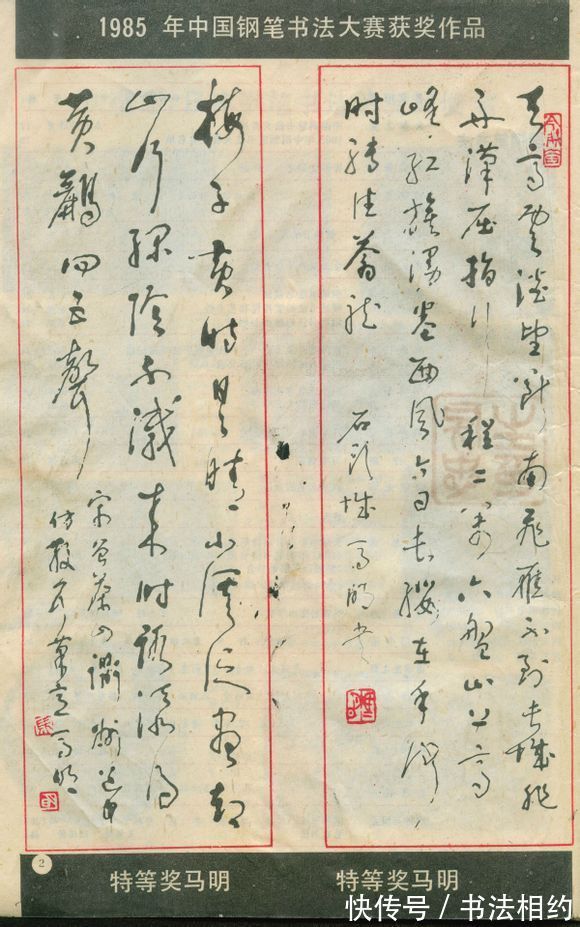 1985 年中国钢笔书法大赛获奖作品
天高雲淡望断南飞雁不到长城非
好漢屈指行程二萬六盤山上高
峰红旗漫卷西风今日长缨在手何
时缚住苍龙 石头城马明书
梅子黄时日日晴小溪泛尽却
山行绿阴不减来时路添得
黄鸝四五聲
宋曾茶山 道中
马明
2
特等奖马明
特等奖马明
快传号 / 书法相约